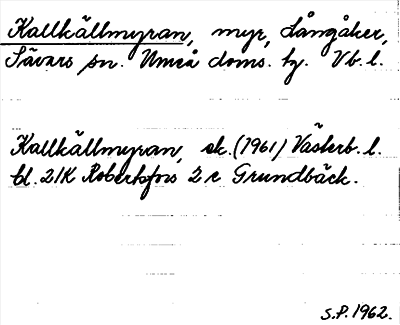 Kallkällmyran, myr, Långåker,
Sävars sn. Umeå doms. tg. Vb. l.
Kallkällmyran, ek. (1961) Västerb. l.
bl. 21K Robertsfors 2 c Grundbäck.
S.P. 1962.